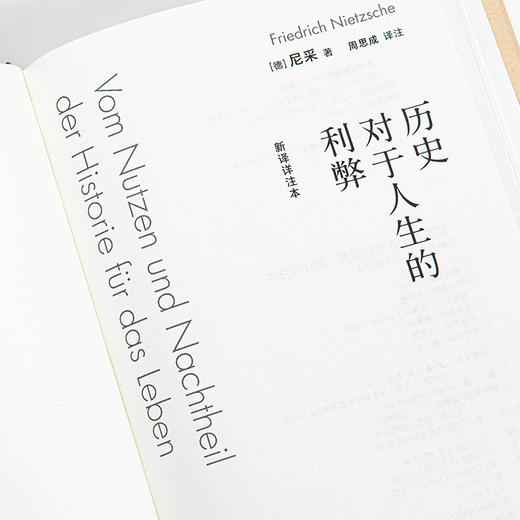 Friedrich Nietzsche
[德] 尼采 著 周思成 译注
历史
对于人生的
利弊
新译详注本
Vom Nutzen und Nachtheil
der Historie für das Leben